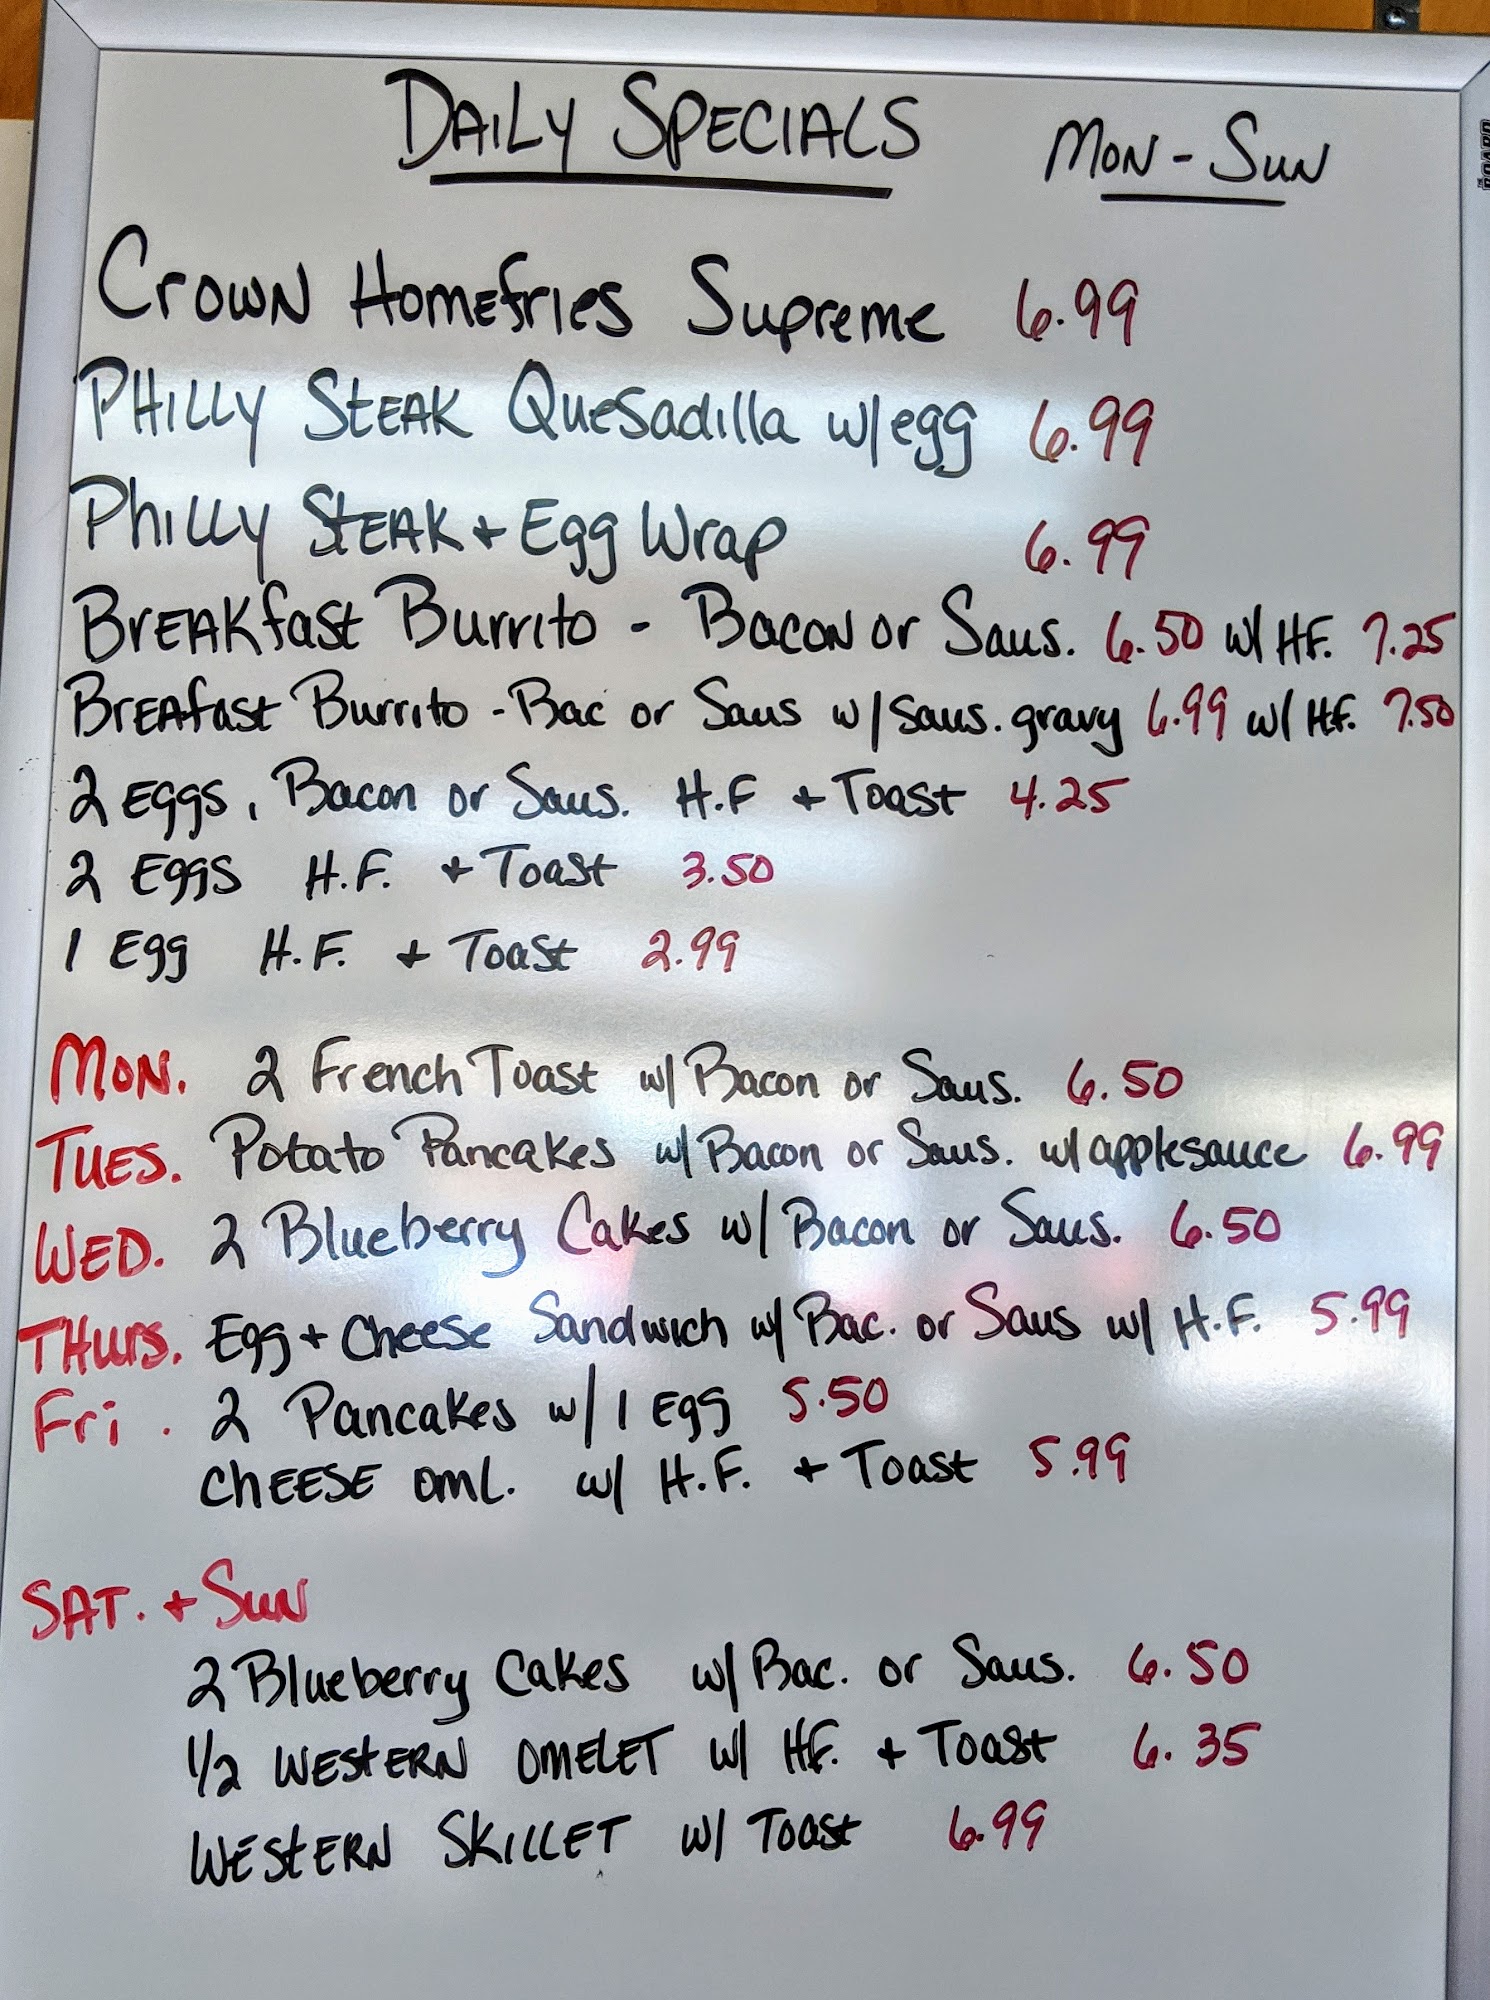 DAILY SPECIALS MON - SUN
Crown Homefries Supreme 6.99
PHILLY STEAK Quesadilla w/egg 6.99
PhILLY STEAK + Egg Wrap 6.99
BrEAKfast Burrito - Bacon or Saus. 6.50 w/ HF. 7.25
BrEAfast Burrito - Bac or Saus w/ saus. gravy 6.99 w/ H.F. 7.50
2 EGGS, Bacon or Saus. H.F + Toast 4.25
2 EGGS H.F. + Toast 3.50
1 Egg H.F. + Toast 2.99
MON. 2 French Toast w/ Bacon or Saus. 6.50
TUES. Potato Pancakes w/ Bacon or Saus. w/ applesauce 6.99
WED. 2 Blueberry Cakes w/ Bacon or Saus. 6.50
THurs. Egg + Cheese Sandwich w/ Bac. or Saus w/ H.F. 5.99
Fri. 2 Pancakes w/ 1 Egg 5.50
ChEESE OML. w/ H.F. + Toast 5.99
SAT. + Sun
2 Blueberry Cakes w/ Bac. or Saus. 6.50
1/2 WESTERN OMELET w/ HF. + Toast 6.35
WESTERN SKILLET w/ Toast 6.99